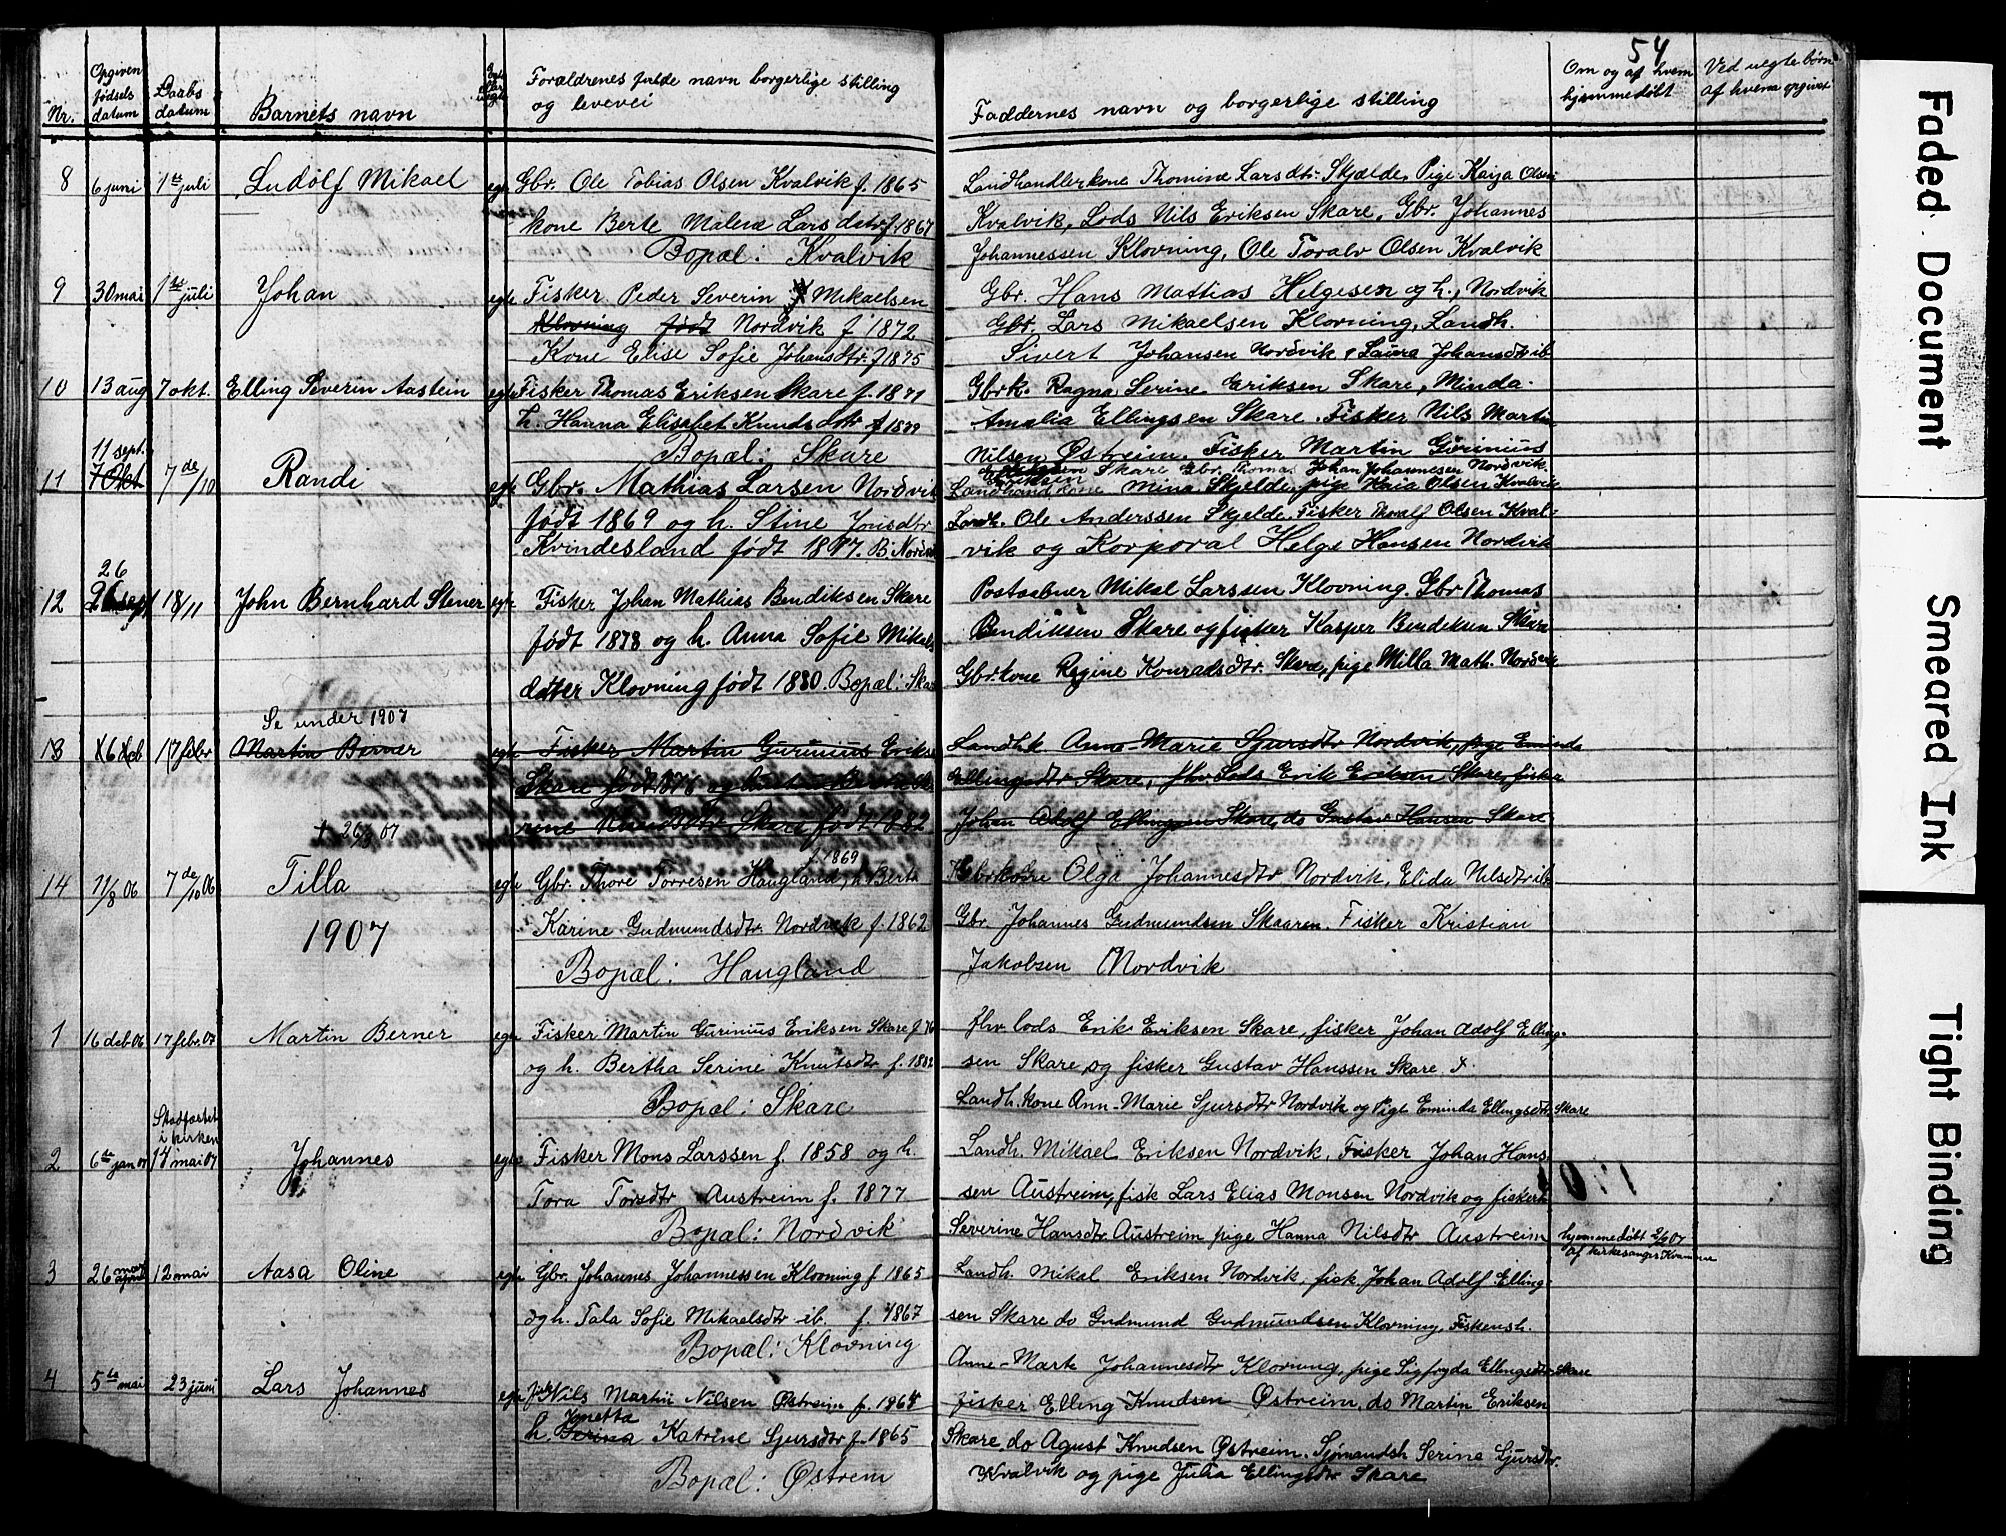 54
Nr. Opgiven fødsels datum Daabs datum Barnets navn Forældrenes fulde navn borgerlige stilling og levevei Faddernes navn og borgerlige stilling Om og af hvem hjemmedøbt Ved uegte børn af hvem opgivet
8 6 juni 1ste juli Ludolf Mikael egte Gbr. Ole Tobias Olsen Kvalvik f. 1865 Landhandlerkone Thomine Larsdtr. Skjelde, Pige Kaija Olsen
kone Berte Malene Larsdatr. f. 1867 Kvalvik, Lods Nils Eriksen Skare, Gbr. Johannes
Bopæl: Kvalvik Johannessen Klovning, Ole Toralv Olsen Kvalvik
9 30 mai 1ste juli Johan egte Fisker Peder Severin Mikaelsen Gbr. Hans Mattias Helgesen og h., Nordvik
Klovning født Nordvik f 1872 Gbr. Lars Mikaelsen Klovning, Landh.
Kone Elise Sofie Johansdtr. f 1875 Sivert Johansen Nordvik & Laura Johansdtr ib
10 13 aug 7 okt. Elling Severin Aastein egte Fisker Thomas Eriksen Skare f. 1871 Gbrk. Ragna Serine Eriksen Skare, Minda
h. Hanna Elisabet Knudsdtr f 1879 Amalia Ellingsen Skare. Fisker Nils Martin
Bopæl: Skare Nilsen Østreim. Fisker Martin Gurinius
11 sept. Eriksen Skare Gbr. Thomas Johan Johannesen Nordvik
11 7 Okt 7de/10 Randi egte Gbr. Mathias Larsen Nordvik Landhand kone Mina Skjelde, pige Kaia Olsen Kvalvik
født 1869 og h. Stine Jonsdtr Landh. Ole Anderssen Skjelde Fisker Thoralf Olsen Kval-
Kvindesland født 1877. B: Nordvik vik og Korporal Helge Hansen Nordvik
26
12 26 sept 18/11 John Bernhard Stener egte Fisker Johan Mathias Bendiksen Skare Postaabner Mikal Larssen Klovning. Gbr Thomas
født 1878 og h. Anna Sofie Mikals Bendiksen Skare og fisker Kasper Bendiksen Skare
datter Klovning født 1880. Bopæl: Skare Gbr.kone Regine Konradsdtr. Skare, pige Milla Math. Nordvik
Se under 1907
13 16 deb 17 febr Martin Berner egte Fisker Martin Gurinius Eriks Landh.k Anne-Marie Sjursdtr Nordvik, pige Eminda
Skare født 1876 og Ellingsdtr Skare, fhv. Lods Erik Eriksen Skare, fisker
rine Knudsdtr Skare født 1882 Johan Adolf Ellingsen Skare, do Gustav Hansen Skare
f. 1869
14 11/8 06 7de/10 06 Tilla egte Gbr. Thore Torresen Haugland, h. Berte Gbrkone Olga Johannesdtr Nordvik, Elida Nilsdtr ib
1907 Karine Gudmundsdtr Nordvik f. 1862 Gbr. Johannes Gudmundsen Skaaren. Fisker Kristian
Bopæl: Haugland Jakobsen Nordvik
1 16 deb 06 17 febr. 07 Martin Berner egte Fisker Martin Gurinius Eriksen Skare f. 76 fhv lods Erik Eriksen Skare, fisker Johan Adolf Elling-
og h. Bertha Serine Knutsdtr f. 1882 sen Skare og fisker Gustav Hanssen Skare &
Bopæl: Skare Landh. kone Ann-Marie Sjursdtr Nordvik og Pige Eminda Ellingsdtr Skare
Stadfæstet i kirken
2 6te jan 07 14 mai 07 Johannes egte Fisker Mons Larssen f. 1858 og h. Landh. Mikael Eriksen Nordvik, Fisker Johan Han-
Tora Torsdtr Austreim f. 1877 sen Austreim, fisk Lars Elias Monsen Nordvik og fiskerh
Bopæl: Nordvik Severine Hansdtr Austreim pige Hanna Nilsdtr Austreim hjemmedøbt 2/6 07 af kirkesanger Kvamme
3 26 april 12 mai Aasa Oline egte Gbr. Johannes Johannessen Klovning f 1865 Landh. Mikal Eriksen Nordvik, fisk. Johan Adolf Elling-
og h. Tala Sofie Mikaelsdtr ib. f. 1867 sen Skare do Gudmund Gudmundsen Klovning, Fiskersh.
Bopæl: Klovning Anne-Marte Johannesdtr Klovning, pige Sigfryda Ellingsdtr Skare
4 5te mai 23 juni Lars Johannes egte fisk Nils Martin Nilsen Østreim f. 1864 Fisker Elling Knudsen Østreim, do Martin Eriksen
h. Jonetta Katrine Sjursdtr f. 1865 Skare, do Agust Knudsen Østreim. Sjømandsh Serine Sjursdtr.
Bopæl: Østrem Kvalvik og pige Julia Ellingsdtr Skare
Faded Document
Smeared Ink
Tight Binding